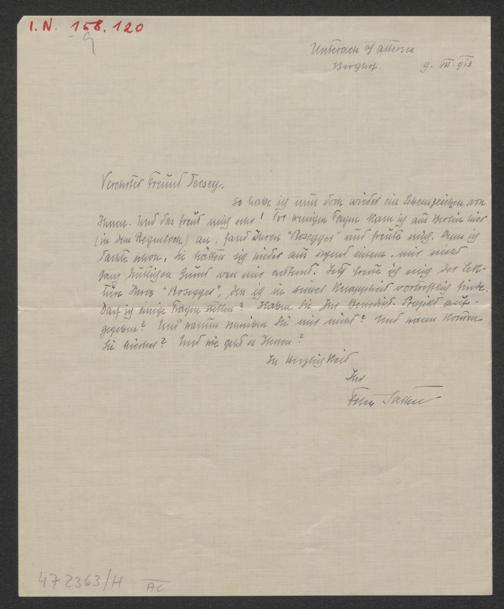 I.N. 158.120
Unterach a/ Attersee
Berghof. 9. VII. 913
Verehrter Freund Decsey,
so habe ich nun doch wieder ein Lebenszeichen von
Ihnen. Und das freut mich sehr! Vor wenigen Tagen kam ich aus Berlin hier
(in den Regenloch) an, fand Ihren "Rosegger" und freute mich. Denn ich
dachte schon, Sie hätten sich wieder aus irgend einem, mir nicht
ganz Grund von mir entfernt. Jetzt freue ich mich der Lek-
türe Ihres "Rosegger", den ich in seiner Knappheit vortrefflich finde.
Darf ich einige Fragen stellen? Haben Sie Ihr Projekt auf-
gegeben? Und warum schreiben Sie mir nicht? Und wann kommen
Sie hierher? Und wie geht es Ihnen?
In Herzlichkeit
Ihr
Felix Salten
472363/H AC